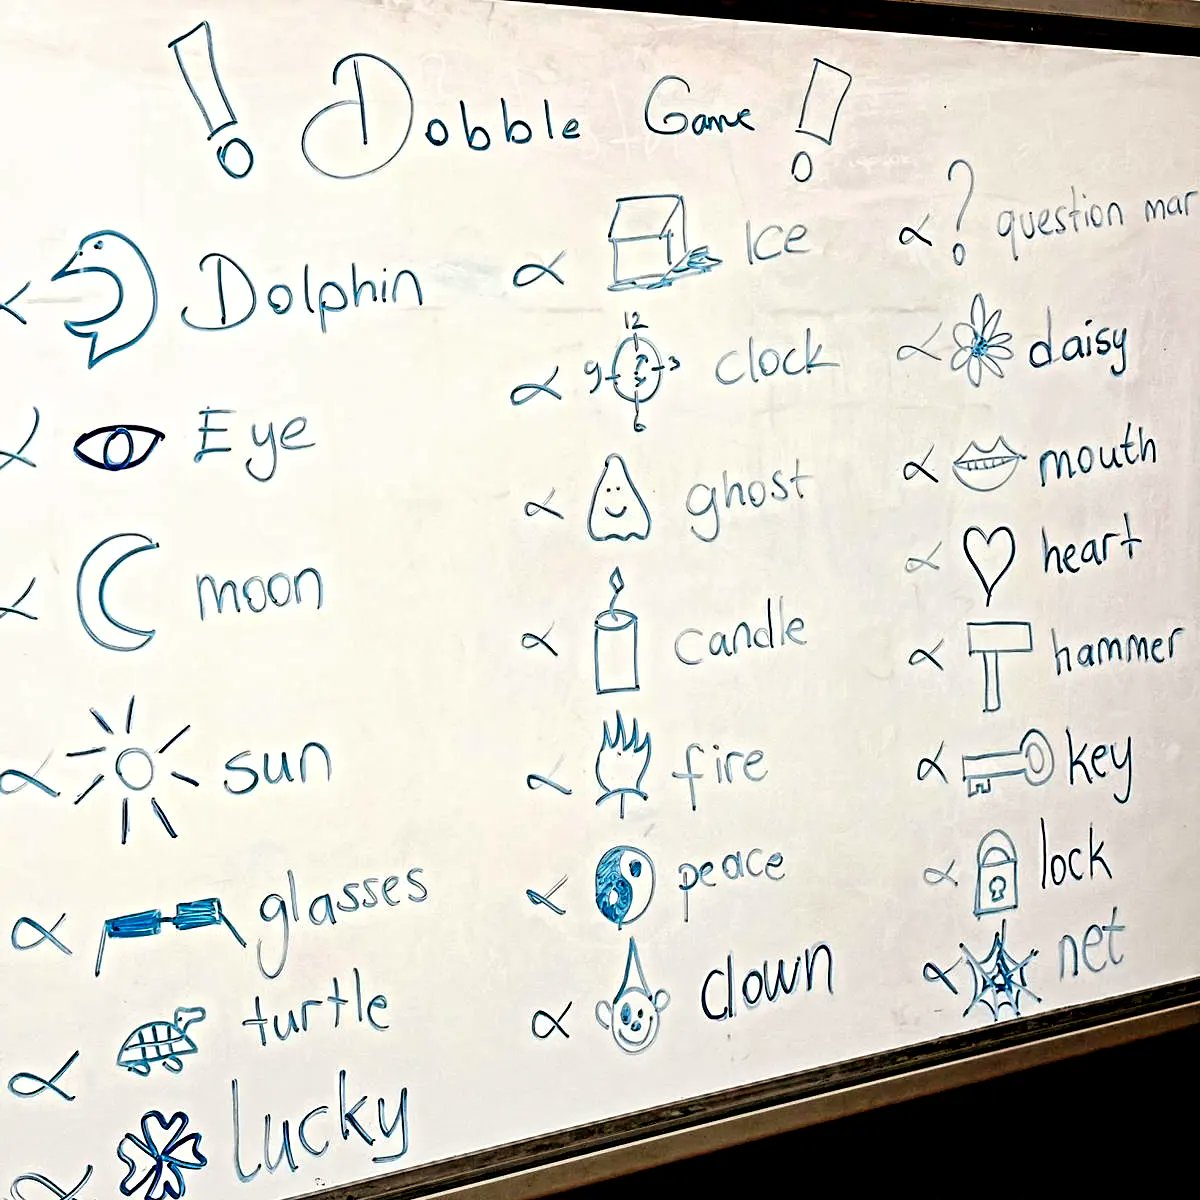 ! Dobble Game !
∝ Dolphin
∝ Eye
∝ moon
∝ sun
∝ glasses
∝ turtle
∝ lucky
∝ Ice
∝ 12 3 6 9 clock
∝ ghost
∝ candle
∝ fire
∝ peace
∝ clown
∝ ? question mar
∝ daisy
∝ mouth
∝ heart
∝ hammer
∝ key
∝ lock
∝ net